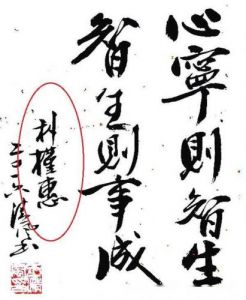 心寧則智生
智生則事成
朴槿惠